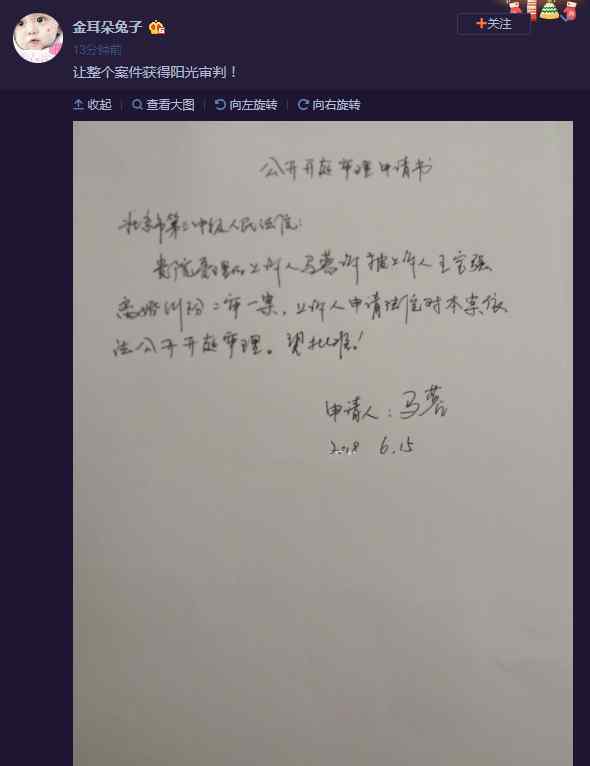 金耳朵兔子
+关注
13分钟前
让整个案件获得阳光审判！
收起
查看大图
向左旋转
向右旋转
公开开庭审理申请书
北京市第三中级人民法院：
贵院受理的上诉人马蓉诉被上诉人王宝强
离婚纠纷二审一案，上诉人申请法院对本案依
法公开开庭审理。望批准！
申请人：马蓉
2018 6.15